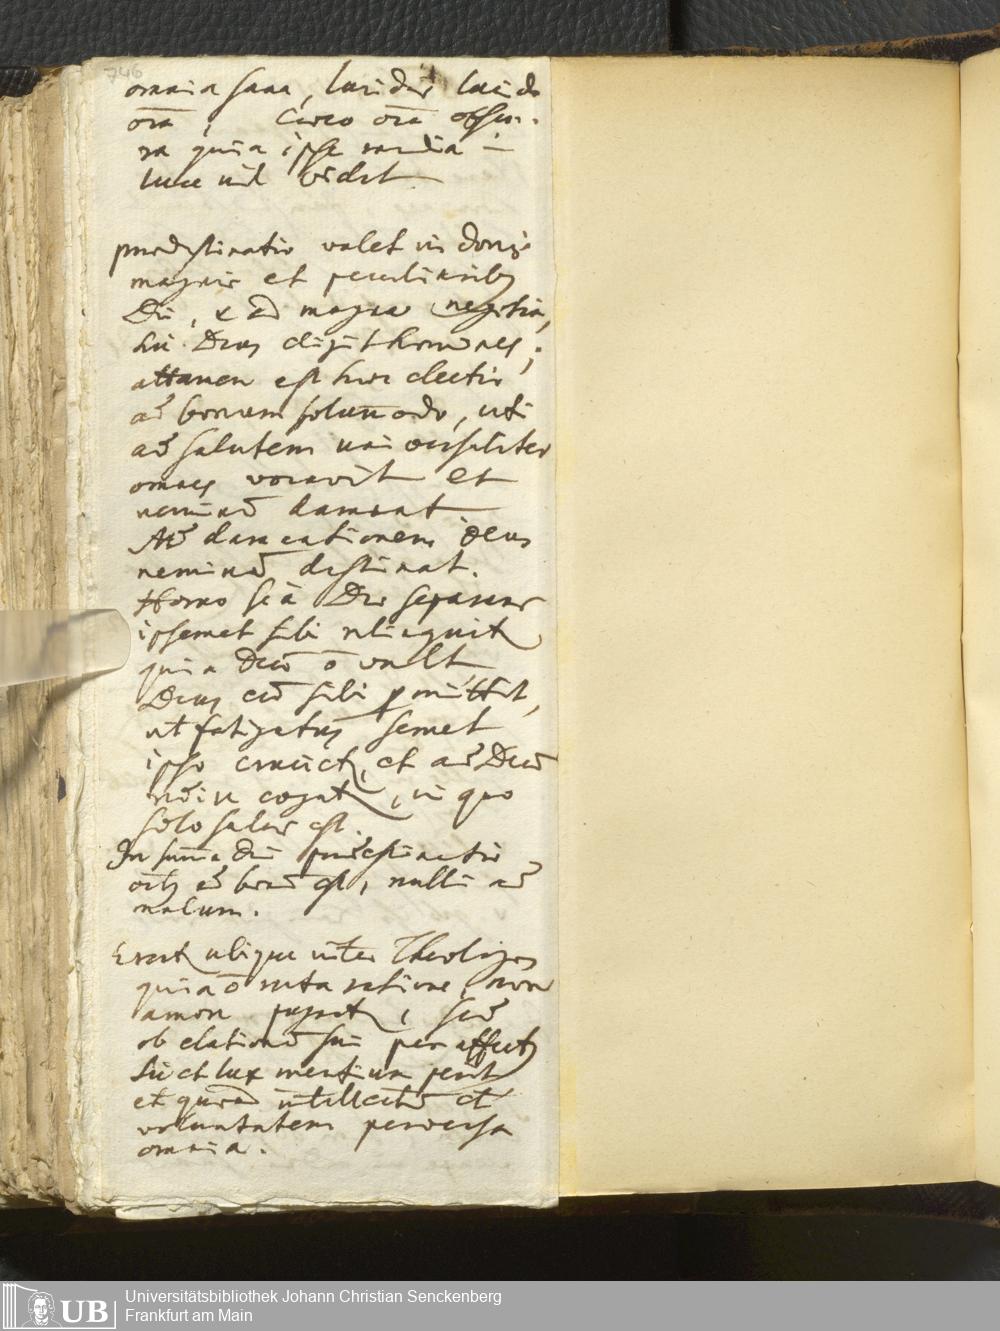 746
omnia sana, lucidus lucido
oīa, Caeco oīa obscu-
ra quia ipse media in
luce nil videt
praedestinatio valet in donis
magnis et peculiaribus
Dei, & ad magna negotia,
hic Deus eligit homines;
attamen est haec electio
ad bonum solummodo, uti
ad salutem universaliter
omnes vocavit et
neminem damnat
Ad damnationem Deus
neminem destinat.
Homo se à Deo separans
ipsemet sibi relinquit
quia Deum ō vult
Deus eum sibi pmittit,
ut fatigatus semet
ipso cruciet, et ad Deum
redire cogat, in quo
solo salus est.
In summa Dei praedestinatio
oīb ad bonum est, nulli ad
malum.
ubique inter Theologos
quia ō recta ratione, non
amore pugnat, sed
ob elationem sui per affectus
sic et lux mentium perit
et quoad intellectum et
voluntatem perversa
omnia.
Universitätsbibliothek Johann Christian Senckenberg
UB Frankfurt am Main